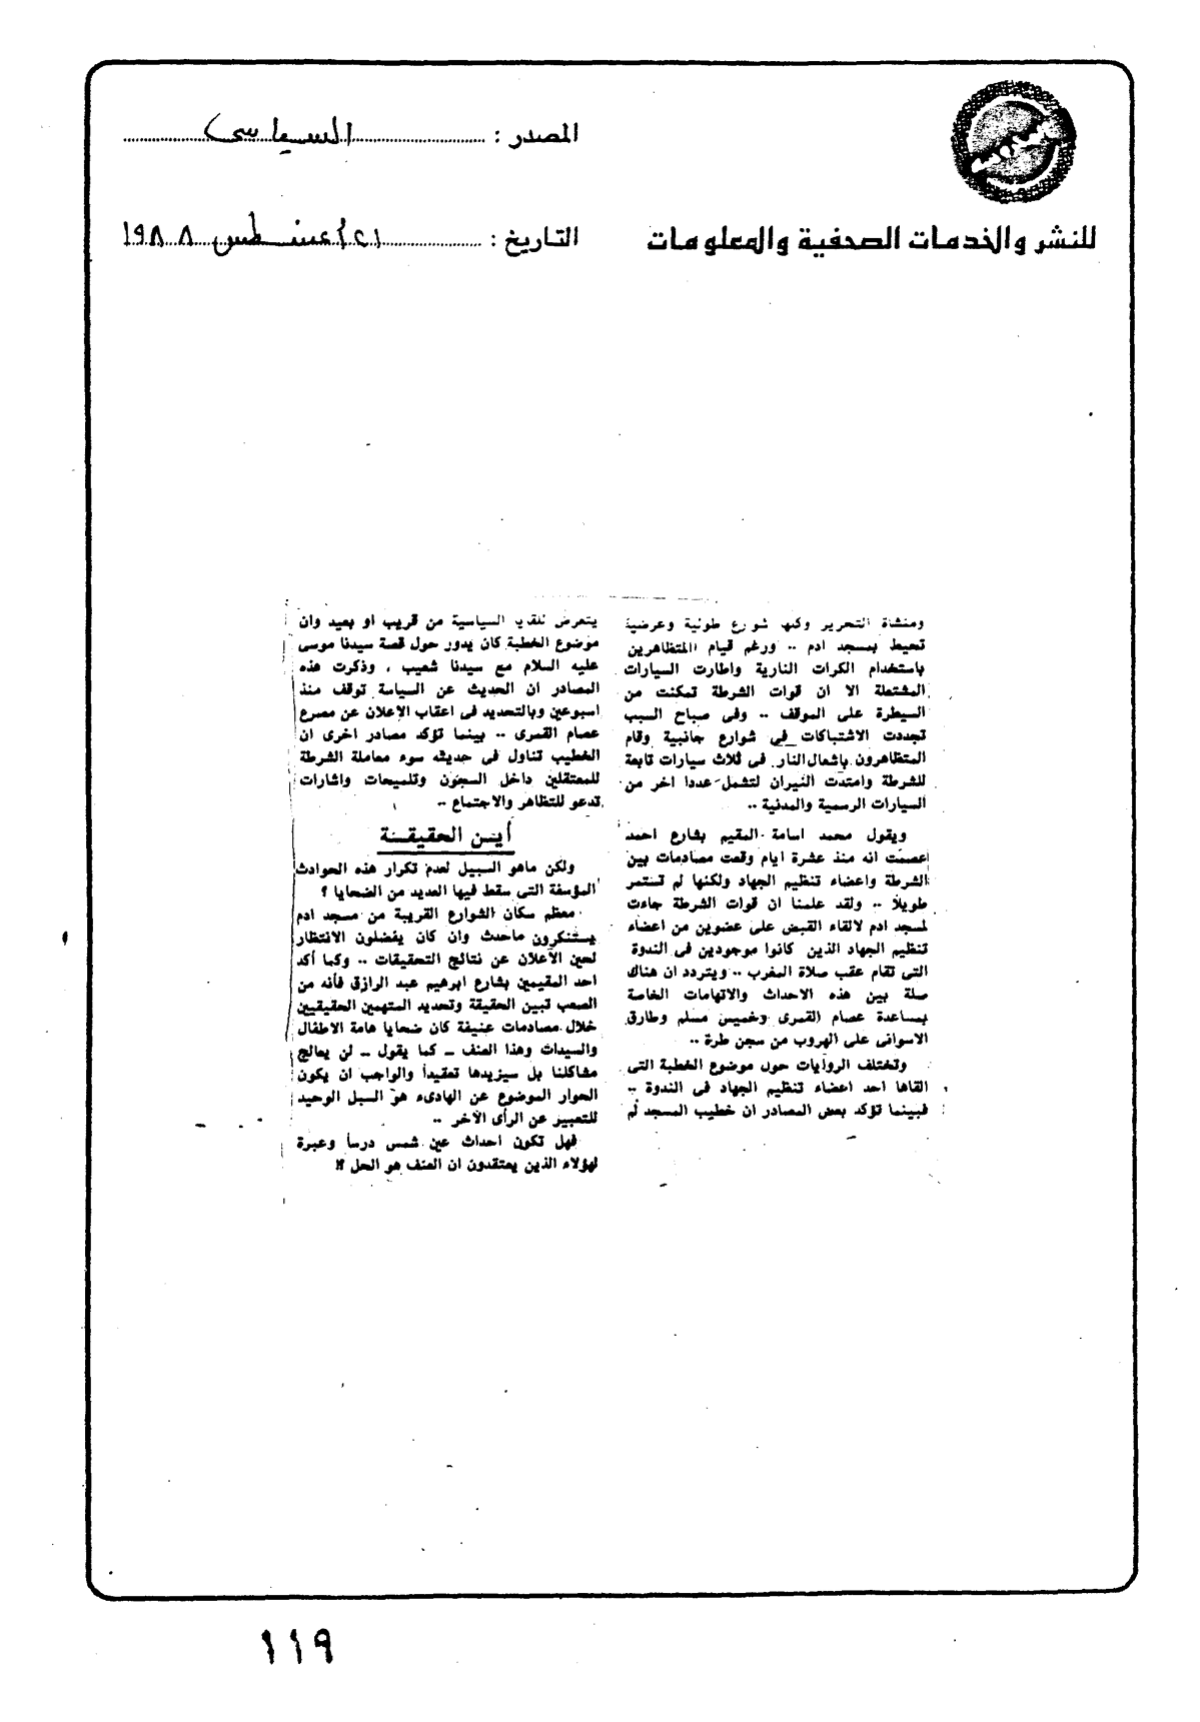 المصدر : السياسى
للنشر والخدمات الصحفية والمعلومات
التاريخ : ٢١ اغسطس ١٩٨٨
ومنشاة التحرير وكلها شوارع طولية وعرضية
تحيط بمسجد ادم .. ورغم قيام المتظاهرين
باستخدام الكرات النارية واطارت السيارات
المشتعلة الا ان قوات الشرطة تمكنت من
السيطرة على الموقف .. وفى صباح السبب
تجددت الاشتباكات فى شوارع جانبية وقام
المتظاهرون باشعال النار فى ثلاث سيارات تابعة
للشرطة وامتدت النيران لتشمل عددا اخر من
السيارات الرسمية والمدنية ..
ويقول محمد اسامة المقيم بشارع احمد
عصمت انه منذ عشرة ايام وقعت مصادمات بين
الشرطة واعضاء تنظيم الجهاد ولكنها لم تستمر
طويلا .. ولقد علمنا ان قوات الشرطة جاءت
لمسجد ادم لالقاء القبض على عضوين من اعضاء
تنظيم الجهاد الذين كانوا موجودين فى الندوة
التى تقام عقب صلاة المغرب .. ويتردد ان هناك
صلة بين هذه الاحداث والاتهامات الخاصة
بمساعدة عصام القمرى وخميس مسلم وطارق
الاسوانى على الهروب من سجن طرة ..
وتختلف الروايات حول موضوع الخطبة التى
القاها احد اعضاء تنظيم الجهاد فى الندوة ..
فبينما تؤكد بعض المصادر ان خطيب المسجد لم
يتعرض للقيادة السياسية من قريب او بعيد وان
موضوع الخطبة كان يدور حول قصة سيدنا موسى
عليه السلام مع سيدنا شعيب ، وذكرت هذه
المصادر ان الحديث عن السياسة توقف منذ
اسبوعين وبالتحديد فى اعقاب الاعلان عن مصرع
عصام القمرى .. بينما تؤكد مصادر اخرى ان
الخطيب تناول فى حديثه سوء معاملة الشرطة
للمعتقلين داخل السجون وتلميحات واشارات
تدعو للتظاهر والاجتماع ..
أين الحقيقة
ولكن ماهو السبيل لعدم تكرار هذه الحوادث
المؤسفة التى سقط فيها العديد من الضحايا ؟
معظم سكان الشوارع القريبة من مسجد ادم
يستنكرون ماحدث وان كان يفضلون الانتظار
لحين الاعلان عن نتائج التحقيقات .. وكما أكد
احد المقيمين بشارع ابرهيم عبد الرازق فأنه من
الصعب تبين الحقيقة وتحديد المتهمين الحقيقيين
خلال مصادمات عنيفة كان ضحايا هامة الاطفال
والسيدات وهذا العنف ــ كما يقول ــ لن يعالج
مشاكلنا بل سيزيدها تعقيداً والواجب ان يكون
الحوار الموضوع عن الهادىء هو السبل الوحيد
للتعبير عن الرأى الآخر ..
فهل تكون احداث عين شمس درسا وعبرة
لهؤلاء الذين يعتقدون ان العنف هو الحل ؟!
١١٩